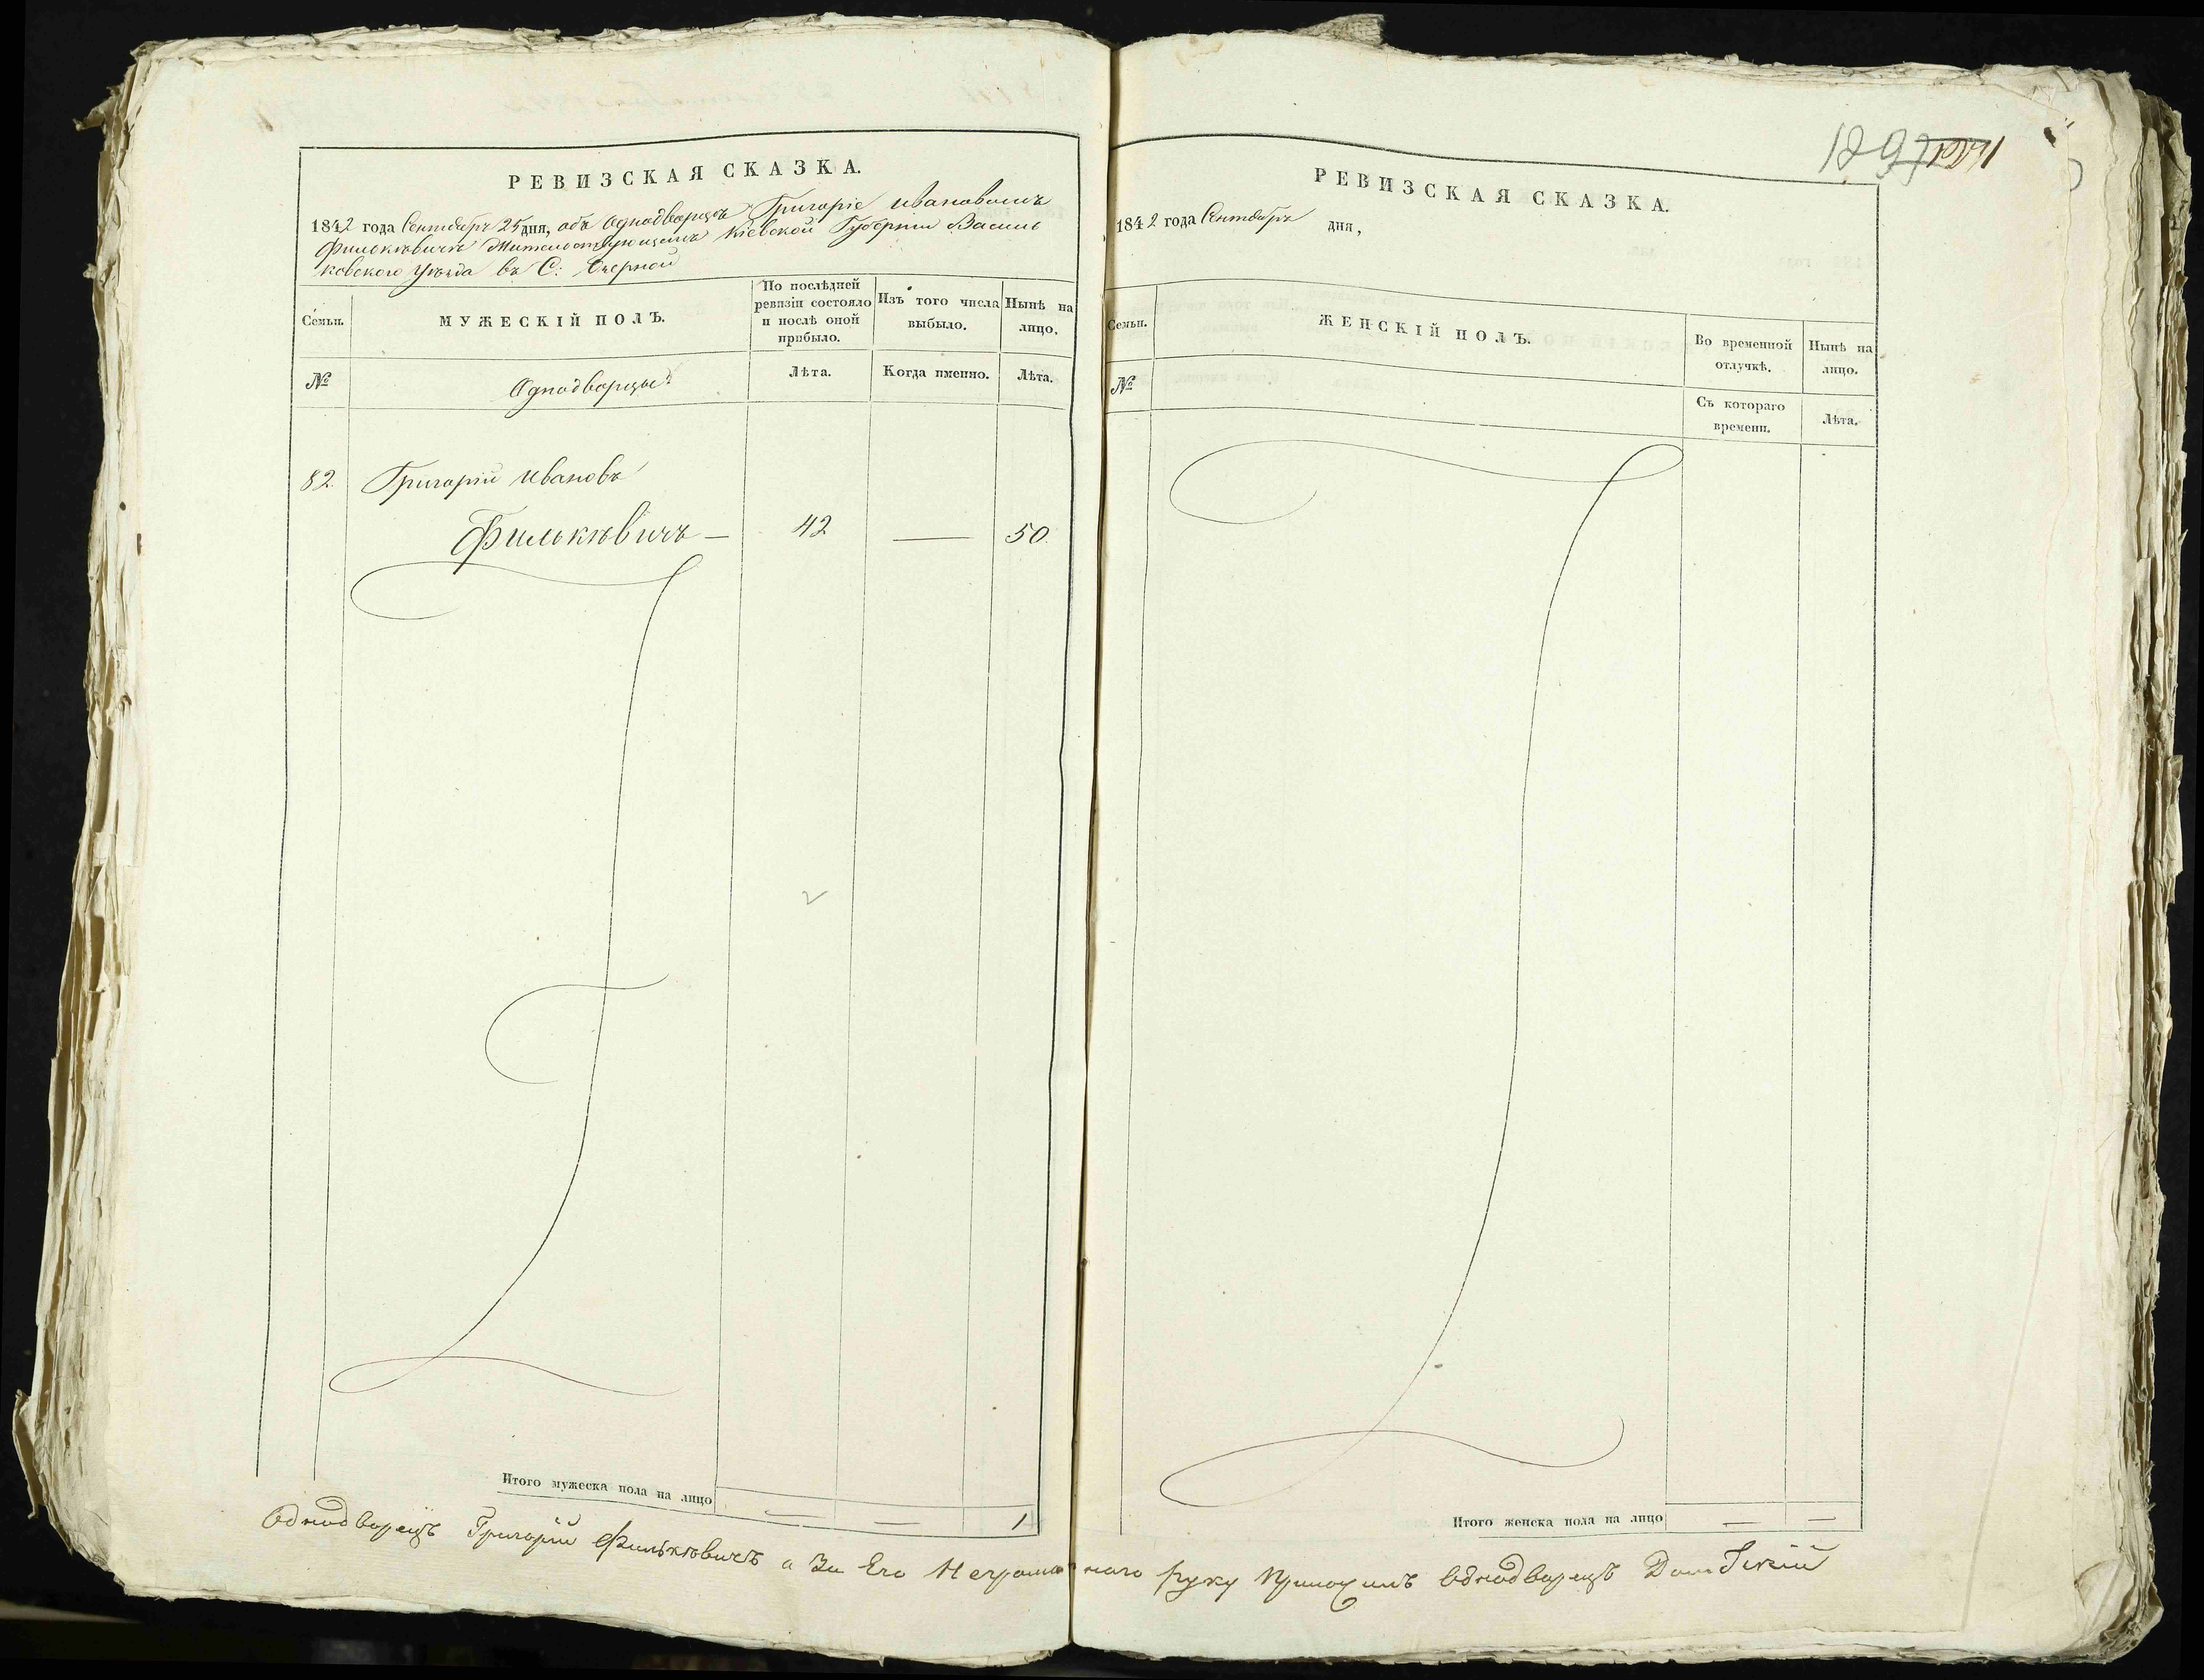 РЕВИЗСКАЯ СКАЗКА.
1842 года Сентября 25 дня, объ Однодворцѣ Григоріе Ивановомъ
Филькѣвичѣ Жительствующемъ Кіевской Губерніи Василь
ковского уѣзда въ С: Озерной
Семьи.
МУЖЕСКІЙ ПОЛЪ.
По послѣдней
ревизіи состояло
и послѣ оной
прибыло.
Изъ того числа
выбыло.
Нынѣ на
лицо.
№
Однодворцы:
Лѣта.
Когда именно.
Лѣта.
82. Григорій Ивановъ
Филькѣвичъ — 42 — 50.
Итого мужеска пола на лицо — — 1
РЕВИЗСКАЯ СКАЗКА.
1842 года Сентября дня,
Семьи.
ЖЕНСКІЙ ПОЛЪ.
Во временной
отлучкѣ.
Нынѣ на
лицо.
№
Съ котораго
времени.
Лѣта.
Итого женска пола на лицо — —
Однодворецъ Григорій Филькѣвичъ а За Его Неграмотнаго руку Приложилъ Однодворецъ